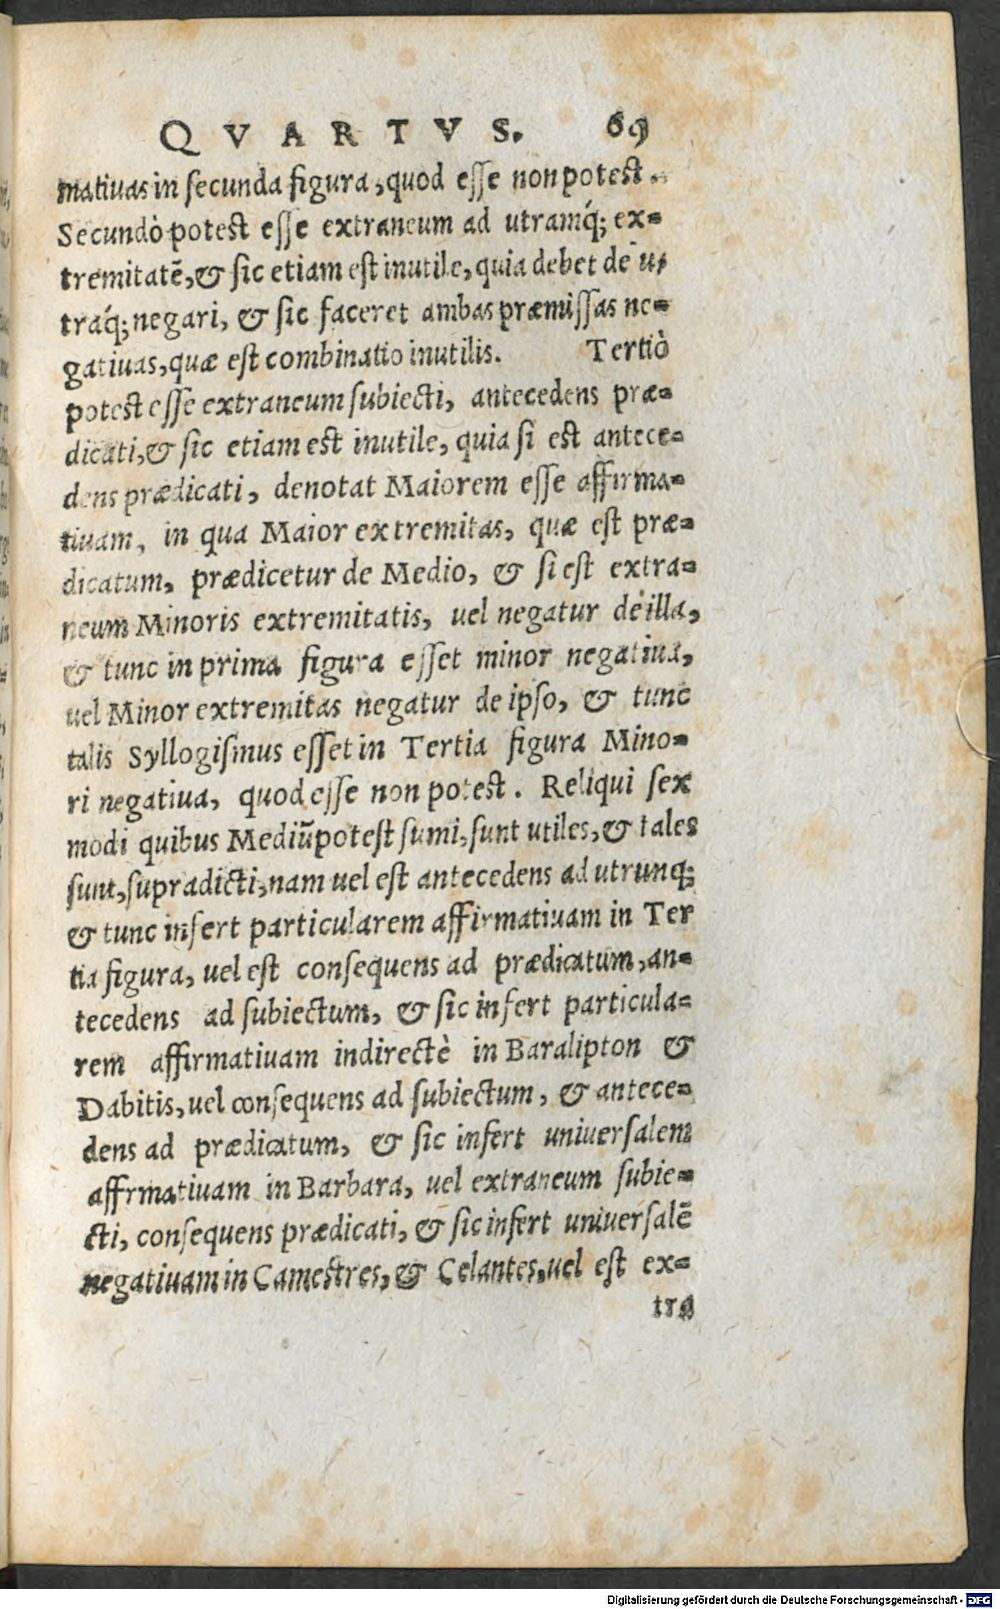 QVARTVS. 69
matiuas in secunda figura, quod esse non potest.
Secundò potest esse extraneum ad utramq́; ex=
tremitatẽ, & sic etiam est inutile, quia debet de u=
traq́; negari, & sic faceret ambas præmissas ne=
gatiuas, quæ est combinatio inutilis. Tertiò
potest esse extraneum subiecti, antecedens præ=
dicati, & sic etiam est inutile, quia si est antece=
dens prædicati, denotat Maiorem esse affirma=
tiuam, in qua Maior extremitas, quæ est præ=
dicatum, prædicetur de Medio, & si est extra=
neum Minoris extremitatis, uel negatur de illa,
& tunc in prima figura esset minor negatiua,
uel Minor extremitas negatur de ipso, & tunc
talis Syllogismus esset in Tertia figura Mino=
ri negatiua, quod esse non potest. Reliqui sex
modi quibus Mediũ potest sumi, sunt utiles, & tales
sunt, supradicti, nam uel est antecedens ad utrunq;
& tunc infert particularem affirmatiuam in Ter
tia figura, uel est consequens ad prædicatum, an=
tecedens ad subiectum, & sic infert particula=
rem affirmatiuam indirectè in Baralipton &
Dabitis, uel consequens ad subiectum, & antece=
dens ad prædicatum, & sic infert uniuersalem
affrmatiuam in Barbara, uel extraneum subie=
cti, consequens prædicati, & sic infert uniuersalẽ
negatiuam in Camestres, & Celantes, uel est ex=
tra
Digitalisierung gefördert durch die Deutsche Forschungsgemeinschaft - DFG